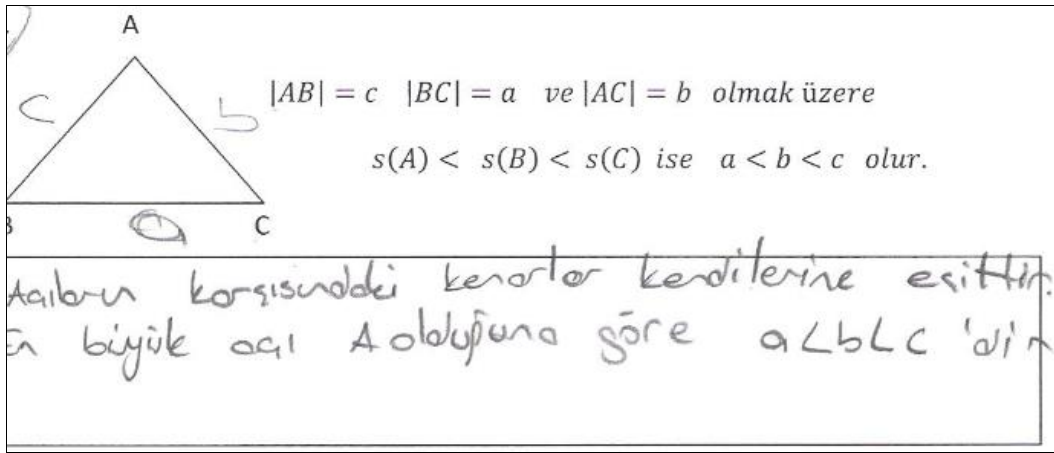 A
c
b
|AB| = c |BC| = a ve |AC| = b olmak üzere
s(A) < s(B) < s(C) ise a < b < c olur.
B
a
C
Açıların karşısındaki kenarlar kendilerine eşittir.
En büyük açı A olduğuna göre a<b<c 'dir